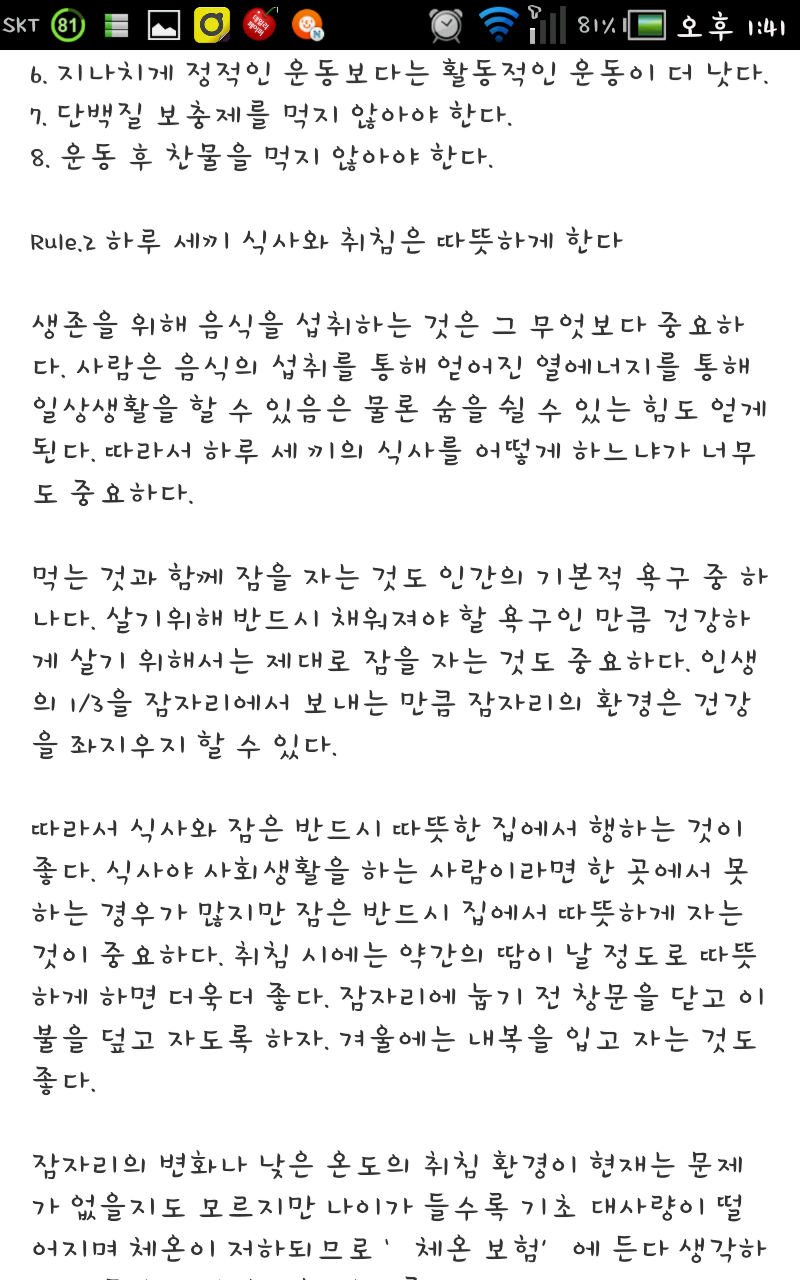 SKT 81 81% 오후 1:41
6. 지나치게 정적인 운동보다는 활동적인 운동이 더 낫다.
7. 단백질 보충제를 먹지 않아야 한다.
8. 운동 후 찬물을 먹지 않아야 한다.
Rule.2 하루 세끼 식사와 취침은 따뜻하게 한다
생존을 위해 음식을 섭취하는 것은 그 무엇보다 중요하
다. 사람은 음식의 섭취를 통해 얻어진 열에너지를 통해
일상생활을 할 수 있음은 물론 숨을 쉴 수 있는 힘도 얻게
된다. 따라서 하루 세 끼의 식사를 어떻게 하느냐가 너무
도 중요하다.
먹는 것과 함께 잠을 자는 것도 인간의 기본적 욕구 중 하
나다. 살기위해 반드시 채워져야 할 욕구인 만큼 건강하
게 살기 위해서는 제대로 잠을 자는 것도 중요하다. 인생
의 1/3을 잠자리에서 보내는 만큼 잠자리의 환경은 건강
을 좌지우지 할 수 있다.
따라서 식사와 잠은 반드시 따뜻한 집에서 행하는 것이
좋다. 식사야 사회생활을 하는 사람이라면 한 곳에서 못
하는 경우가 많지만 잠은 반드시 집에서 따뜻하게 자는
것이 중요하다. 취침 시에는 약간의 땀이 날 정도로 따뜻
하게 하면 더욱더 좋다. 잠자리에 눕기 전 창문을 닫고 이
불을 덮고 자도록 하자. 겨울에는 내복을 입고 자는 것도
좋다.
잠자리의 변화나 낮은 온도의 취침 환경이 현재는 문제
가 없을지도 모르지만 나이가 들수록 기초 대사량이 떨
어지며 체온이 저하되므로 ‘ 체온 보험’ 에 든다 생각하